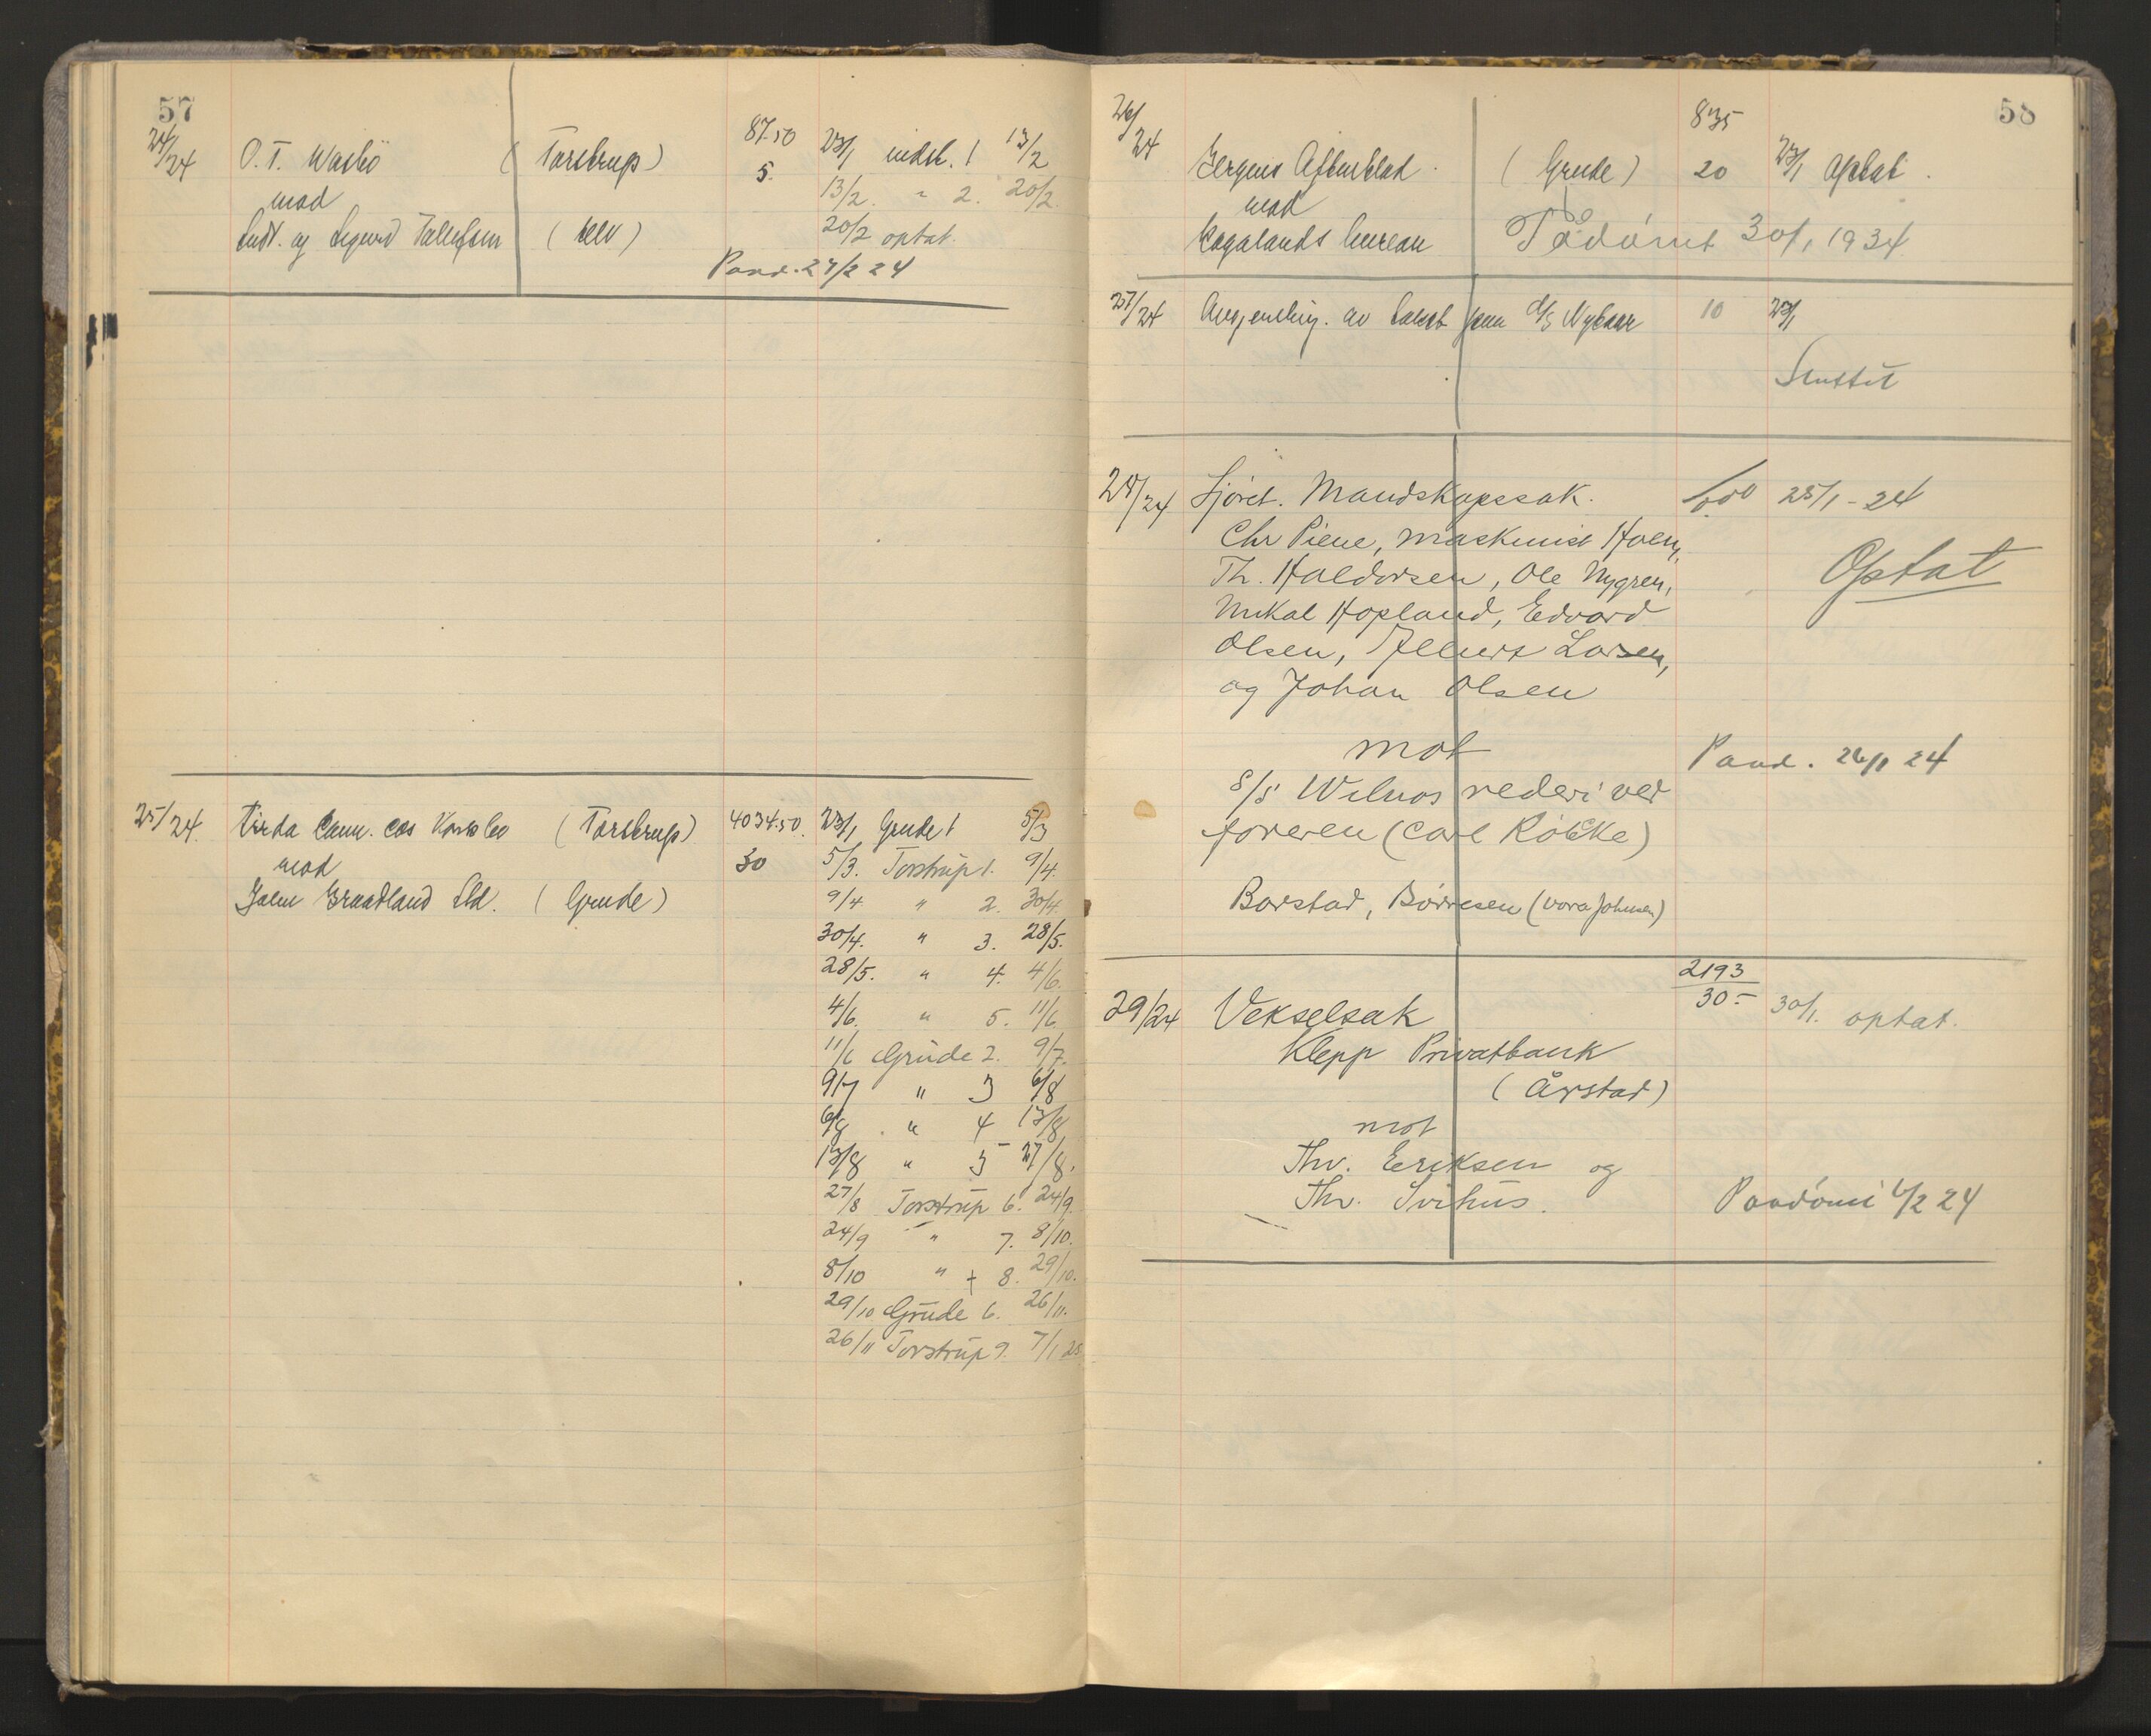 57
24/24 O. T. Waslö (Torstrup) 87.50 23/1 indst. 1 13/2
mad 5. 13/2. " 2. 20/2.
og Sigurd Tallefsen (selv) 20/2 optat.
Paad. 27/2 24
25/24 comm. cos (Torstrup) 4034.50. 23/1 Grude 1 5/3
mad 30 5/3. Torstrup 1. 9/4.
Graadland (Grude) 9/4 " 2. 30/4.
30/4. " 3. 28/5.
28/5. " 4. 4/6.
4/6. " 5. 11/6
11/6 Grude 2. 9/7.
9/7 " 3 6/8
6/8 " 4 13/8
13/8 " 5 27/8.
27/8 Torstrup 6. 24/9.
24/9 " 7. 8/10.
8/10 " + 8. 29/10.
29/10 Grude 6. 26/11.
26/11 Torstrup 9. 7/1 25
58
26/24 835
Aftenblad (Grude) 20 23/1 optat.
mad
Rogalands bureau Pådömt 30/1 1934
27/24 av d/s 10 23/1
Sluttet
28/24 Sjöret. Mandskapssak. 25/1 - 24
Chr Piene, maskinist Holm,
Th. Haldorsen, Ole Nygren, Optat
Mikal Hopland, Edvard
Olsen, Larsen,
og Johan Olsen
mot Paad. 26/1 24
S/S Wilnos rederi ved
föreren (Carl Röbke)
Barstad, Börresen (Vora Johnsen)
2193
29/24 Vekselsak 30.- 30/1. optat.
Klepp Privatbank
(Årstad)
mot
Thv. Eriksen og
Thv. Svihus. Paadömt 4/2 24